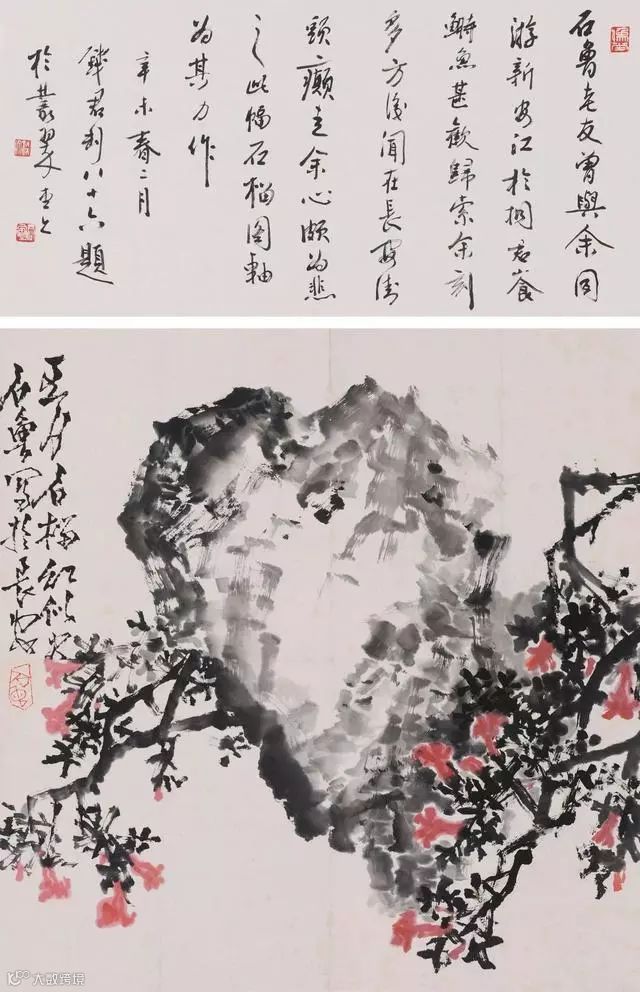 石魯老友曾與余同
游新安江於桐君餐
鰣魚甚歡歸索余刻
多方後聞在長安街
頭癲走余心頗為悲
之此幅石榴图軸
為其力作
辛未春二月
錢君匋八十六題
於叢翠堂上
五月石榴红似火
石魯寫於長安
大数跨境